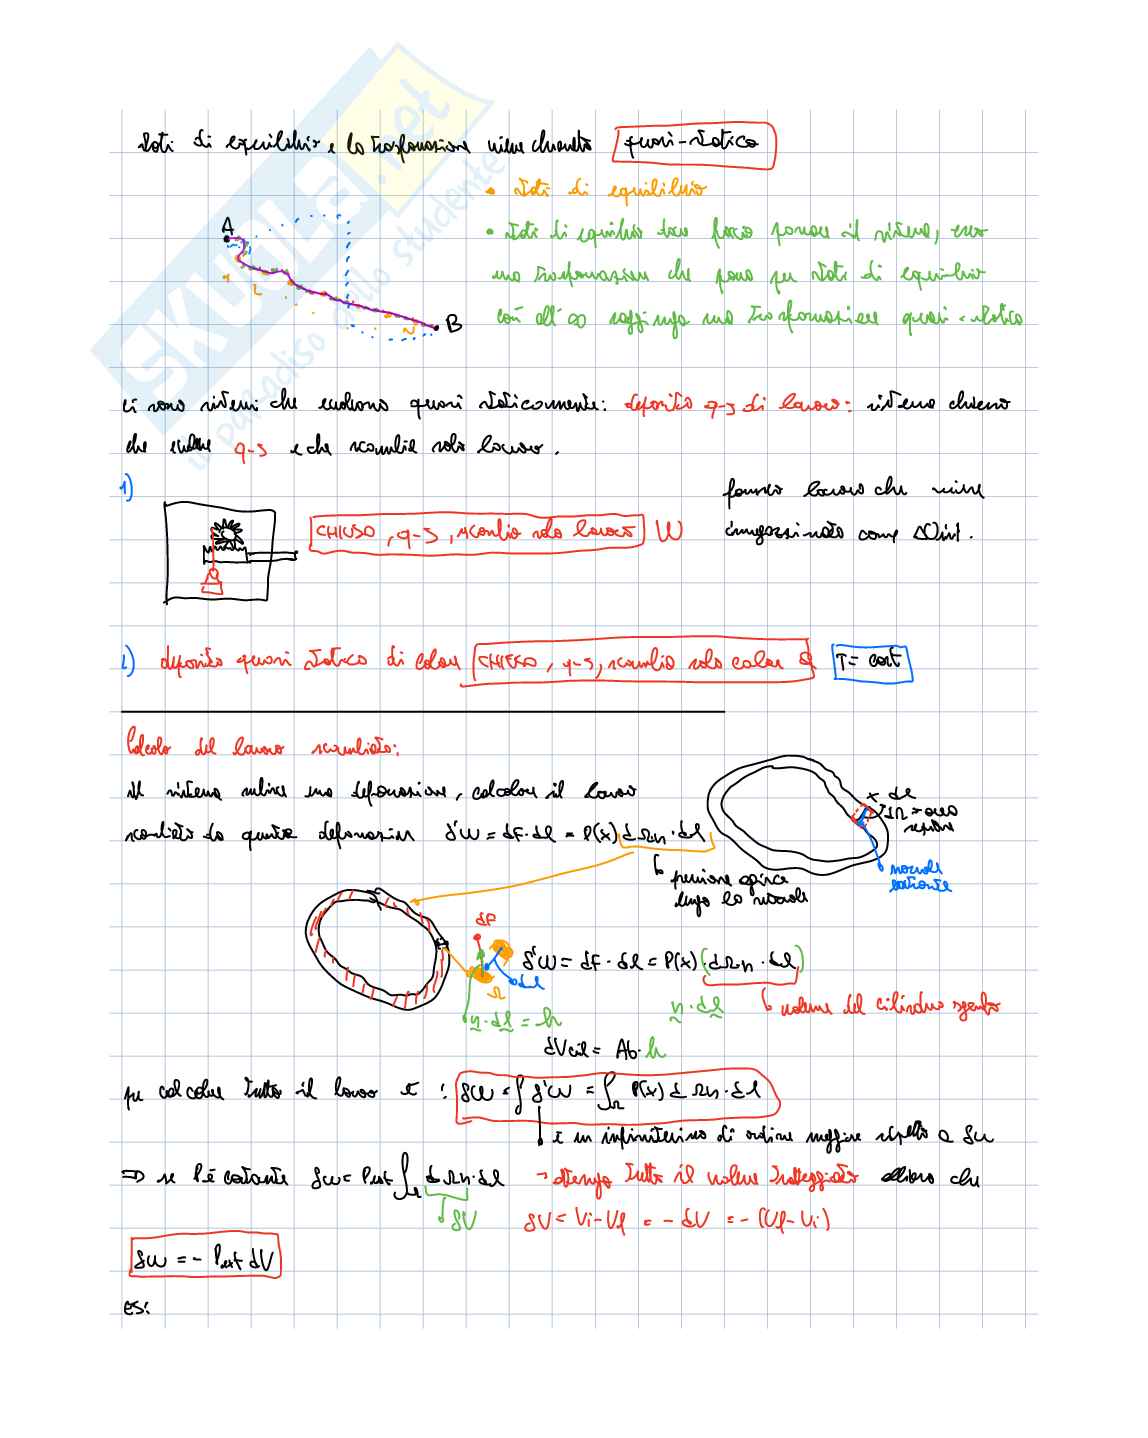 stati di equilibrio e la trasformazione viene chiamata quasi-statica
• stati di equilibrio
• stati di equilibrio dove faccio passare il sistema, creo
A
una trasformazione che passa per stati di equilibrio
1
2
così all'∞ raggiungo una trasformazione quasi-statica
N
B
Ci sono sistemi che evolvono quasi staticamente: deposito q-s di lavoro: sistema chiuso
che evolve q-s e che scambia solo lavoro.
1)
fornisco lavoro che viene
CHIUSO, q-s, scambia solo lavoro W
immagazzinato come ΔUint.
2) deposito quasi statico di calore CHIUSO, q-s, scambia solo calore Q T = cost
Calcolo del lavoro scambiato:
Il sistema subisce una deformazione, calcolare il lavoro
x dl
dΩ = area
scambiato da questa deformazione δ'W = dF·dl = P(x) dΩn·dl
pressione agisce
lungo la normale
normale
dF
δ'W = dF·dl = P(x)·(dΩn·dl)
dl
Ω
n·dl = h
n·dl
volume del cilindro
dVcil = Ab·h
per calcolare tutto il lavoro è: δW = ∫ δ'W = ∫Ω P(x) dΩn·dl
è un infinitesimo di ordine maggiore rispetto a δW
⇒ se P è costante δW = Pext ∫Ω dΩn·dl → ottengo tutto il volume tratteggiato allora che
δV
δV = Vi-Vf = -dV = -(Vf-Vi)
δW = - Pext dV
es:
SKUOLA.net
il paradiso dello studente